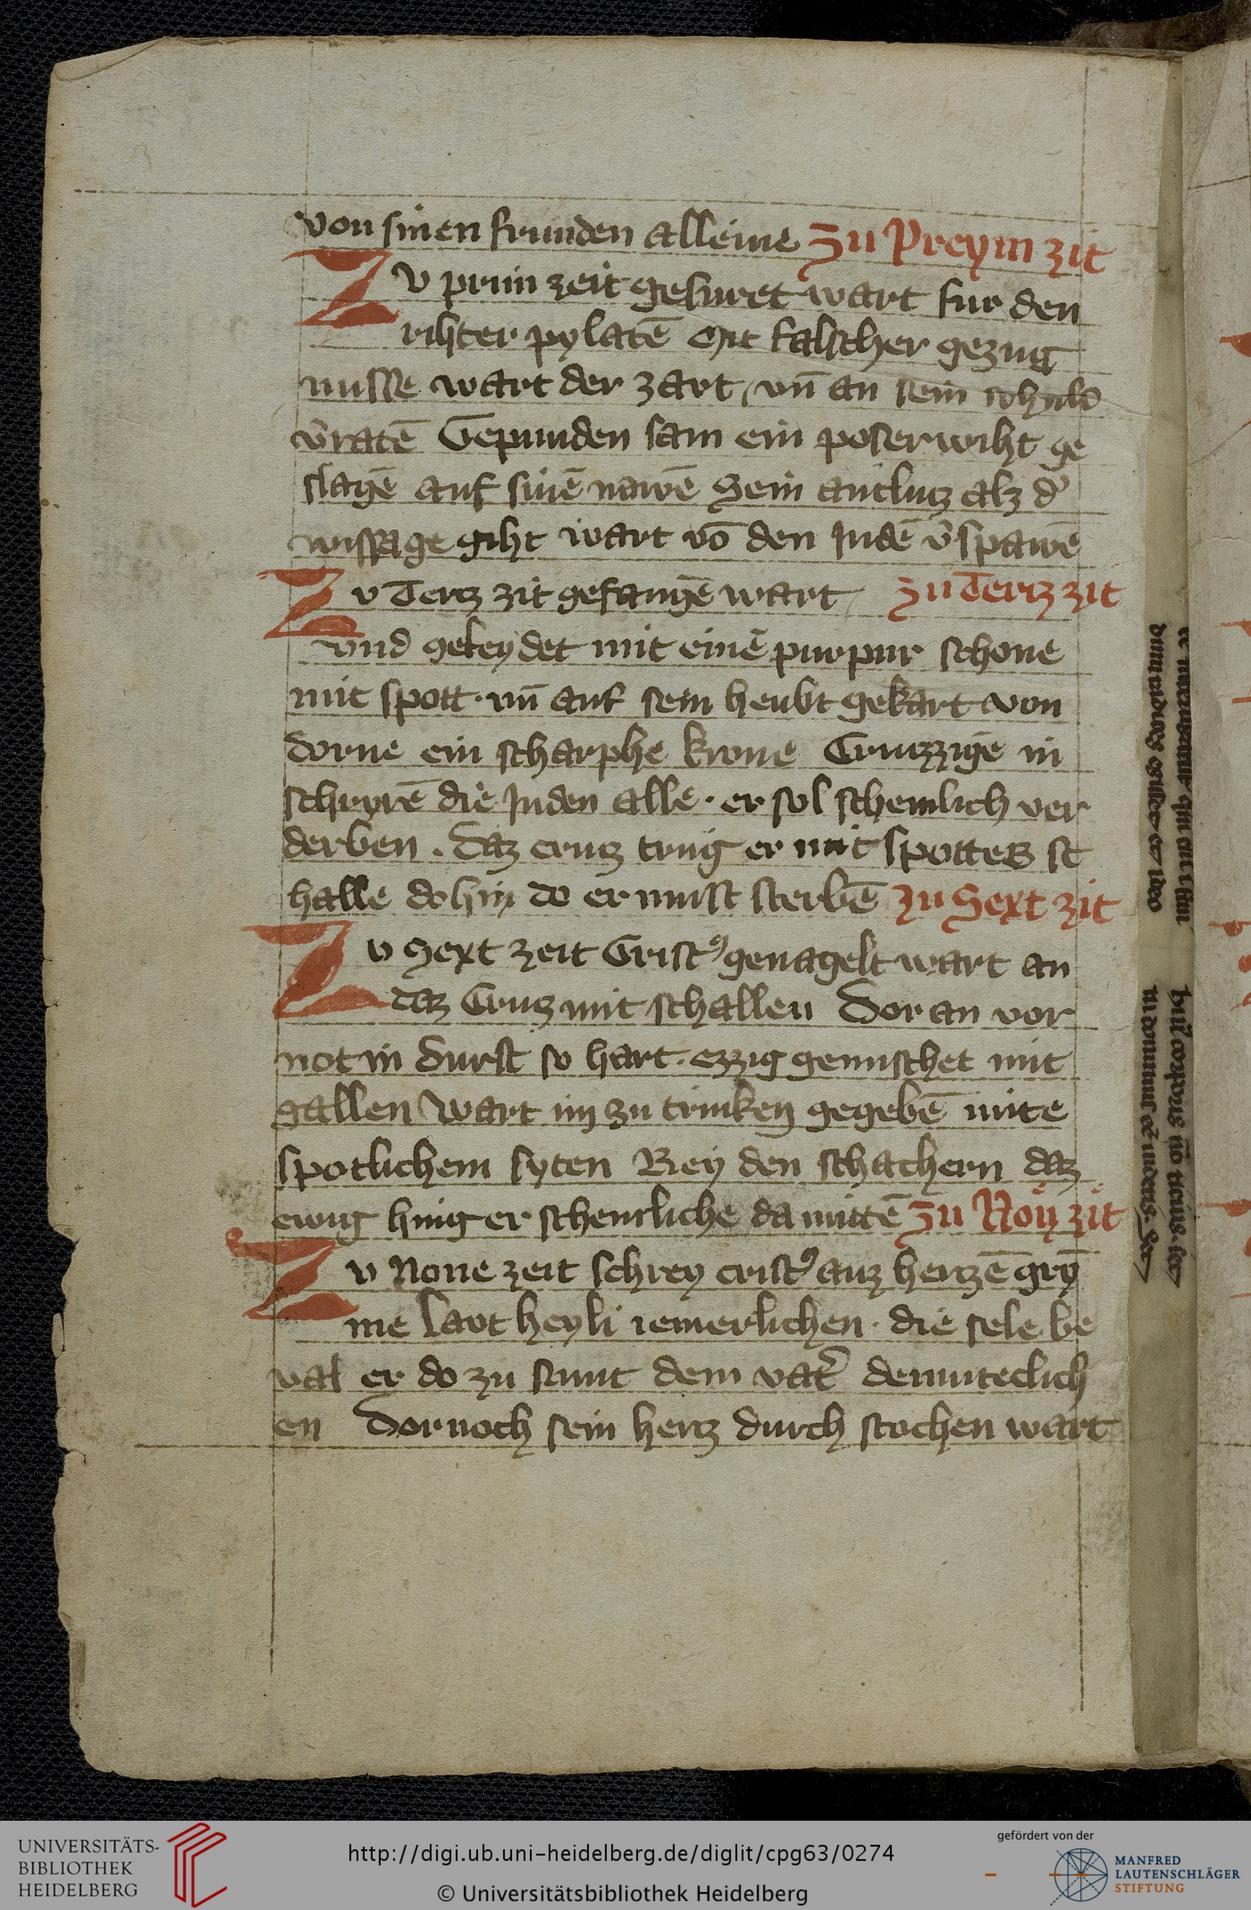 von sinen frunden alleine Zu Preym zit
Zv prim zeit gefuret wart fur den
rihter pylatē Mit falscher gezug
nusse wart der zart, vn̄ an sein schuld
v̄ratē Gepunden sam ein poser wiht ge
slagē auf sinē nawē Sein antlutz alz d̾
wissage giht wart vō den Judē v̄spawē
Zv Tertz zit gefangē wart Zu Tertz zit
vnd gekeydet mit einē purpur schone
mit spott · vn̄ auf sein heubt gekart von
dorne ein scharphe krone Cruczzigē in
schryrē die Juden alle · er sol schemlich ver
derben . Daz crutz trug er mit spottes sc
halle do hin do er must sterbē Zu Sext zit
Zv Sext zeit Crist⁹ genagelt wart an
daz Crutz mit schallen Dor an vor
not in durst so hart · ezzig gemischet mit
gallen Wart im zu trinken gegebē mite
spotlichem syten Bey den schachern daz
ewig hing er schemliche da mittē Zu Noy zit
Zv None zeit schrey crist⁹ auz hertzē gry̅
me lavt heyli iemerlichen · die sele be
val er do zu stunt dem vat̾ demuteclich
en Dor noch sein hertz durch stochen wart
UNIVERSITÄTS-
BIBLIOTHEK
HEIDELBERG
http://digi.ub.uni-heidelberg.de/diglit/cpg63/0274
© Universitätsbibliothek Heidelberg
gefördert von der
MANFRED
LAUTENSCHLÄGER
STIFTUNG